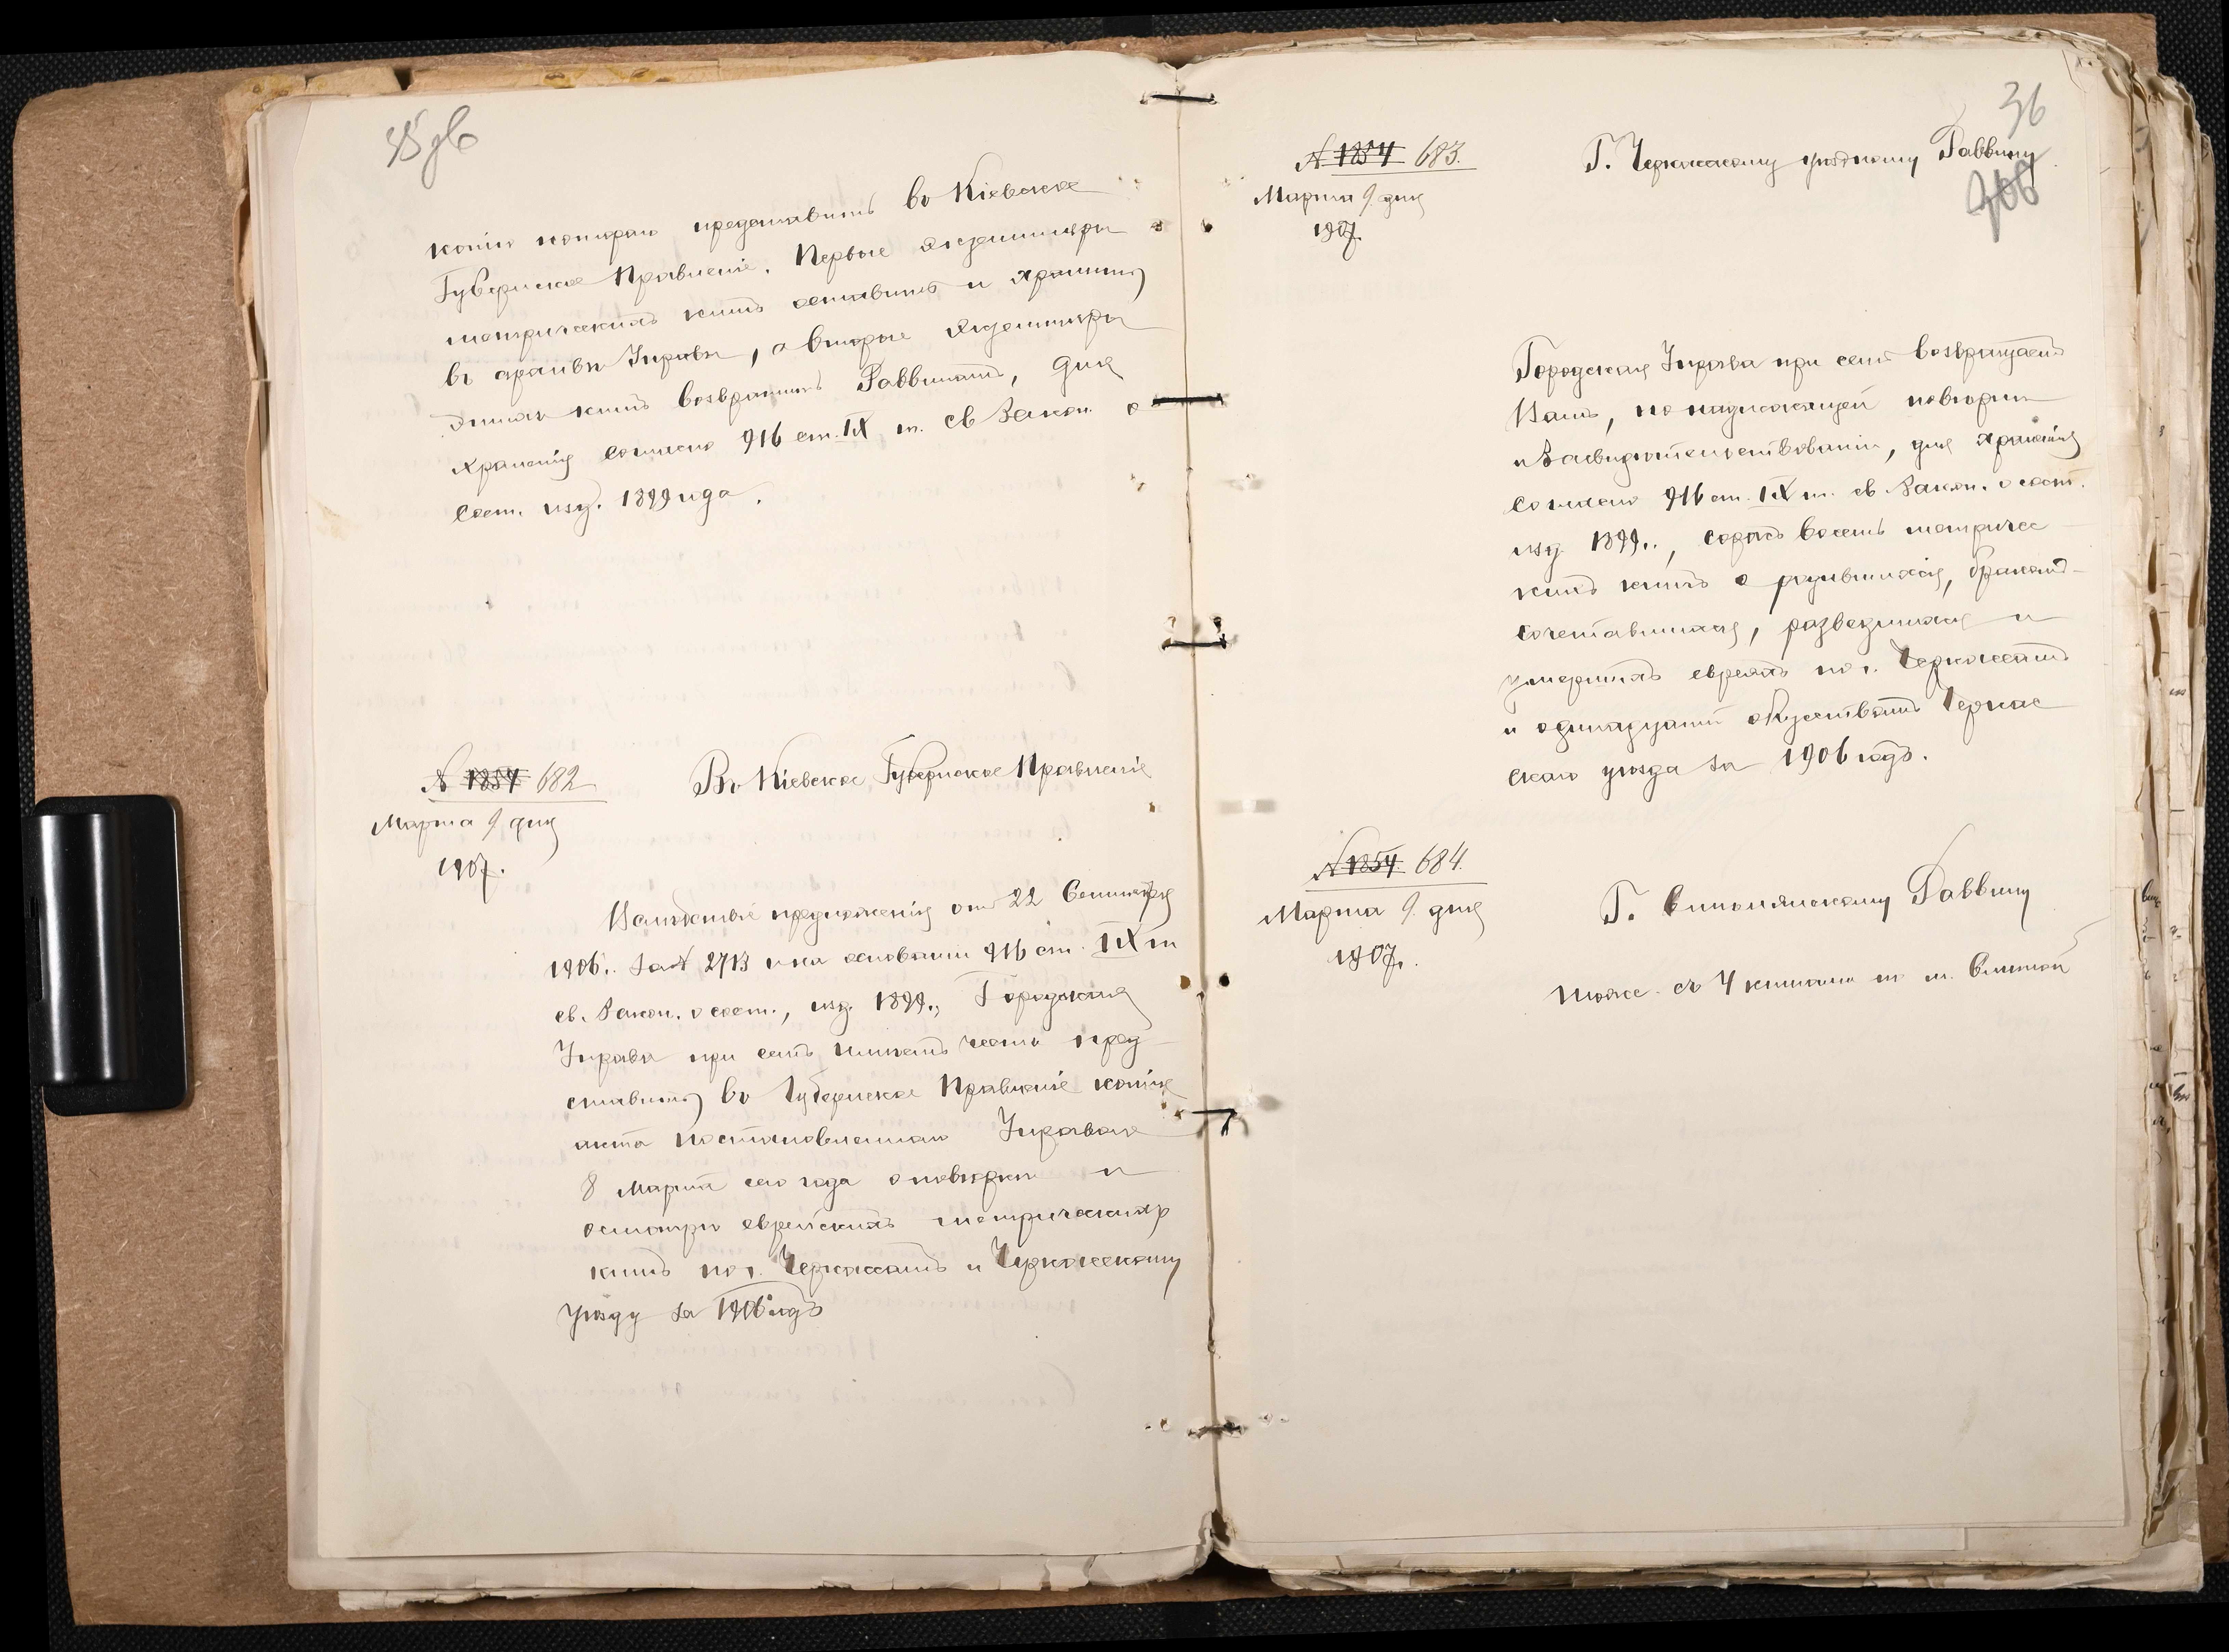 35 об
копію которого представить въ Кіевское
Губернское Правленіе. Первые экземпляры
метрическихъ книгъ оставить и хранить
въ архивѣ Управы, а вторые экземпляры
этихъ книгъ возвратить Раввинамъ, для
храненія согласно 916 ст. IX т. св Закон. о
сост. изд. 1899 года.
№ 1854 682
Марта 9 дня
1907.
Въ Кіевское Губернское Правленіе
Вслѣдствіе предложенія отъ 22 Сентября
1906 г. за № 2713 и на основаніи 916 ст. IX т
св. Закон. о сост., изд. 1899 г., Городская
Управа при семъ имѣетъ честь пред
ставить въ Губернское Правленіе копію
акта постановленнаго Управою
8 Марта сего года о повѣркѣ и
осмотрѣ еврейскихъ метрическихъ
книгъ по г. Черкассамъ и Черкасскому
уѣзду за 1906 годъ
36
№ 1854 683.
Марта 9 дня
1907.
Г. Черкасскому уѣздному Раввину.
Городская Управа при семъ возвращаетъ
Вамъ, по надлежащей повѣркѣ
и засвидѣтельствованіи, для храненія
согласно 916 ст. IX т. св Закон. о сост.
изд. 1899 г., сорокъ восемь метричес
кихъ книгъ о родившихся, бракомъ
сочетавшихся, разведшихся и
умершихъ евреяхъ по г. Черкассамъ
и одинадцати обществамъ Черкас
скаго уѣзда за 1906 годъ.
№ 1854 684.
Марта 9. дня
1907.
Г. Смѣлянскому Раввину
Тоже съ 4 книгами по м. Смѣлой